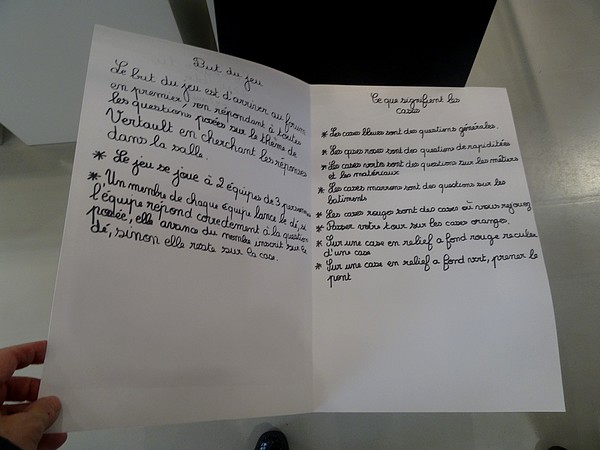 But du jeu
Le but du jeu est d'arriver au forum
en premier, en répondant à toutes
les questions posées sur le thème de
Vertault en cherchant les réponses
dans la salle.
* Le jeu se joue à 2 équipes de 3 personnes
* Un membre de chaque équipe lance le dé, si
l'équipe répond correctement à la question
posée, elle avance du nombre inscrit sur le
dé, sinon elle reste sur la case.
Ce que signifient les
cases
* Les cases bleues sont des questions générales.
* Les cases roses sont des questions de rapidités
* Les cases verts sont des questions sur les métiers
et les matériaux
* Les cases marrons sont des questions sur les
batiments
* Les cases rouges sont des cases où vous rejouez
* Passer votre tour sur les cases oranges.
* Sur une case en relief a fond rouge reculer
d'une case
* Sur une case en relief a fond vert, prener le
pont